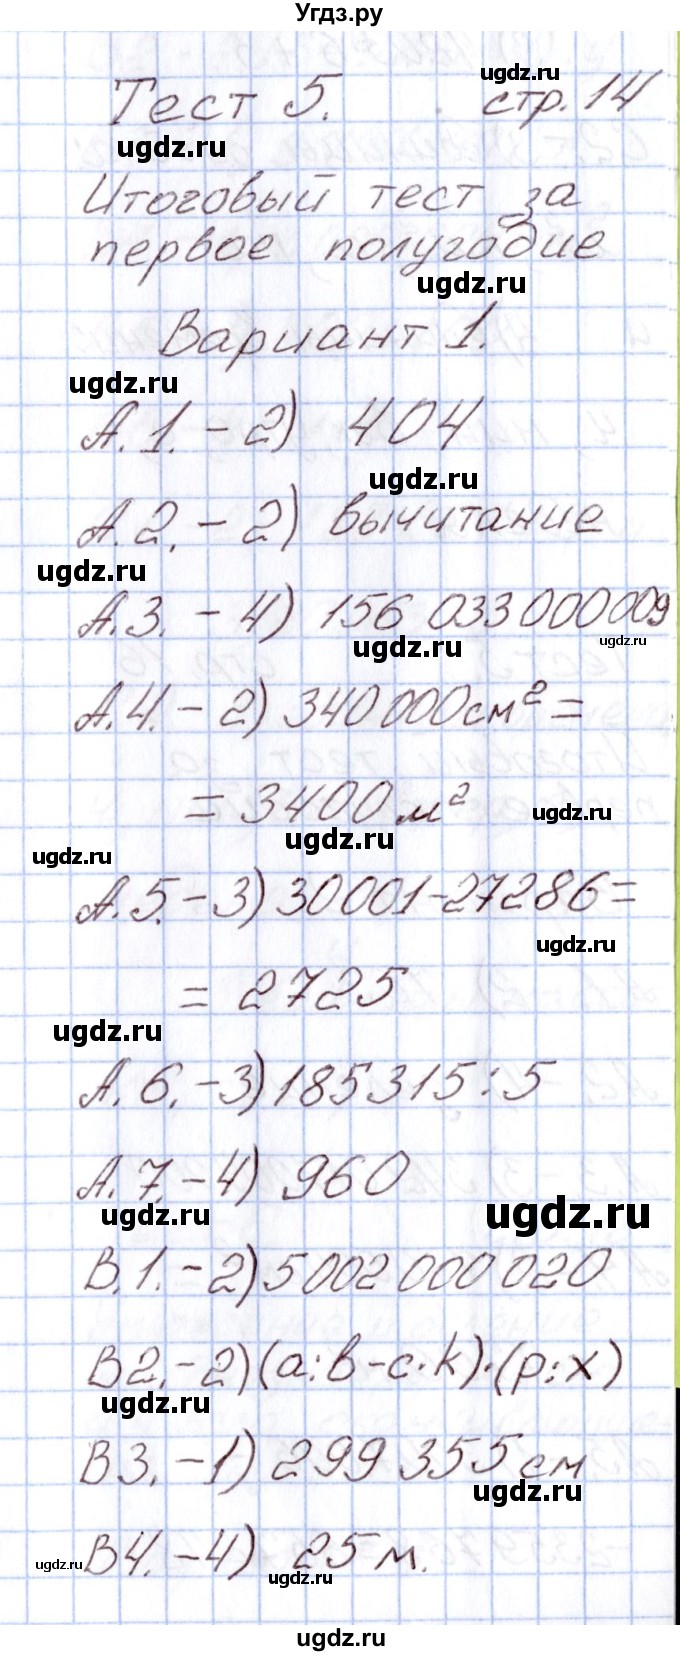 Угдз.ру
Тест 5. стр. 14
ugdz.ru
ugdz.ru
Итоговый тест за
первое полугодие
ugdz.ru
Вариант 1.
ugdz.ru
А.1. - 2) 404
ugdz.ru
А.2. - 2) вычитание
ugdz.ru
А.3. - 4) 156 033 000 009
ugdz.ru
ugdz.ru
А.4. - 2) 340 000 см² =
= 3400 м²
ugdz.ru
ugdz.ru
ugdz.ru
А.5. - 3) 30001-27286 =
ugdz.ru
= 2725
ugdz.ru
А.6. - 3) 185315 : 5
А.7. - 4) 960
ugdz.ru
ugdz.ru
В.1. - 2) 5 002 000 020
В2. - 2) (a : b - c · k) · (p : x)
ugdz.ru
В3. - 1) 299 355 см
ugdz.ru
В4. - 4) 25 м.
ugdz.ru
ugdz.ru
ugdz.ru